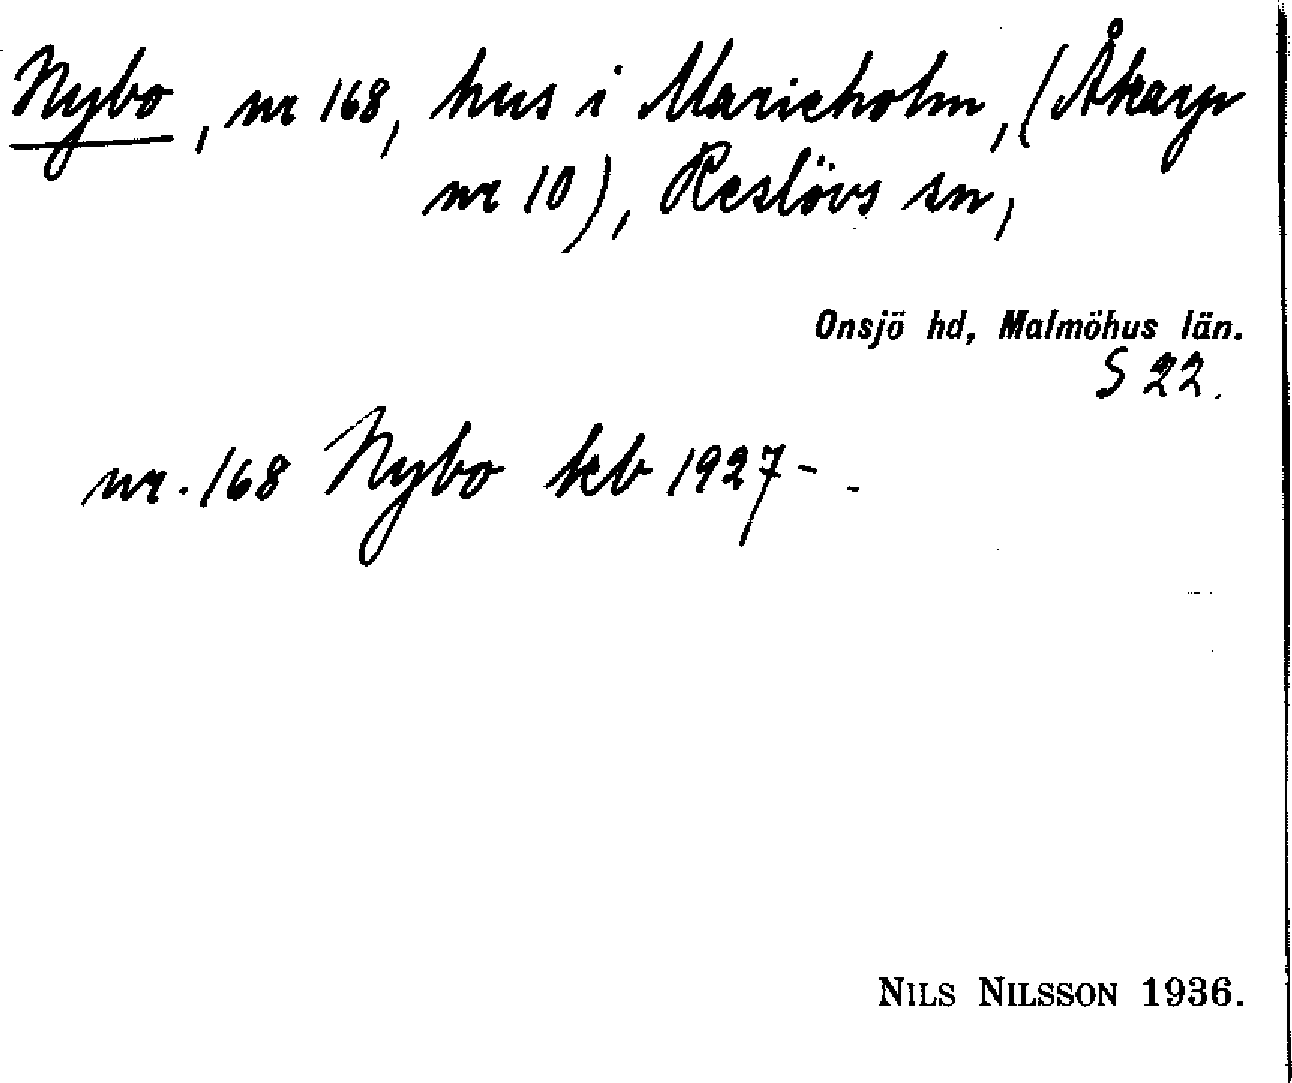 Nybo, nr 168, hus i Marieholm, (Åkarp
nr 10), Reslövs sn,
Onsjö hd, Malmöhus län.
S 22.
nr. 168 Nybo kb 1927- .
NILS NILSSON 1936.